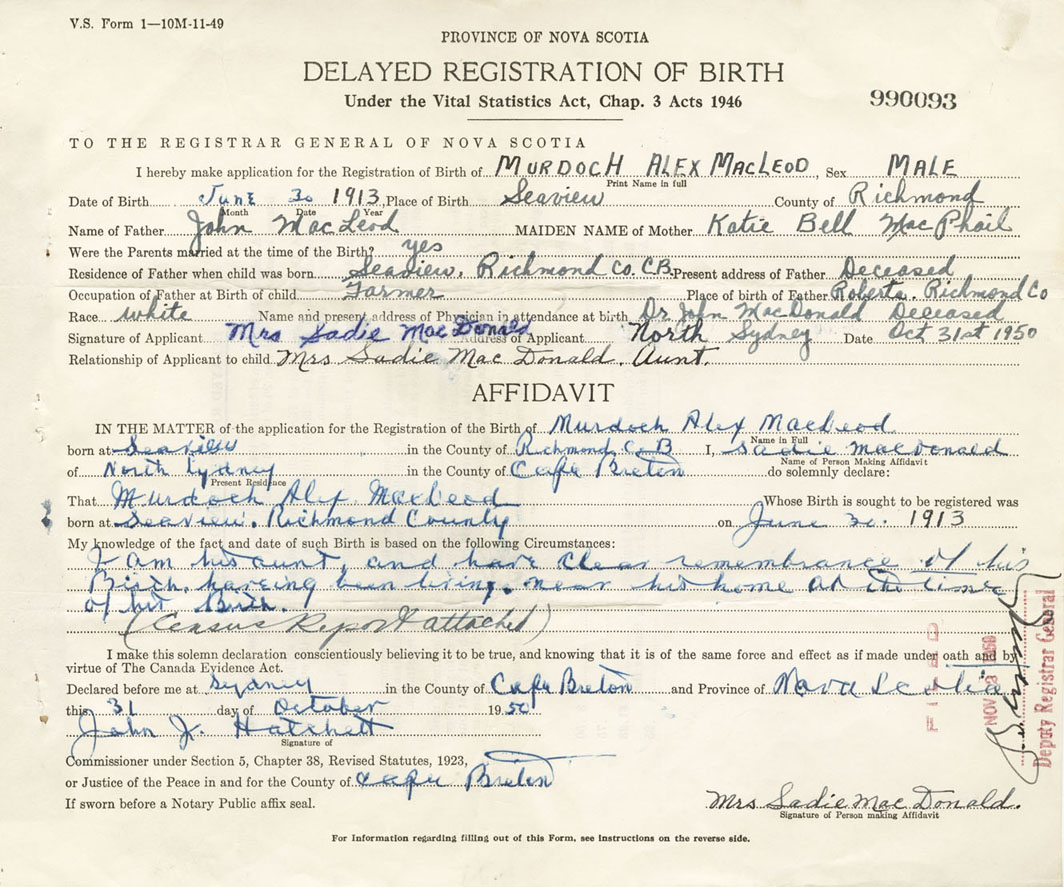 V.S. Form 1—10M-11-49
PROVINCE OF NOVA SCOTIA
DELAYED REGISTRATION OF BIRTH
Under the Vital Statistics Act, Chap. 3 Acts 1946
990093
TO THE REGISTRAR GENERAL OF NOVA SCOTIA
I hereby make application for the Registration of Birth of MURDOCH ALEX MACLEOD, Sex MALE
Print Name in full
Date of Birth June 30 1913, Place of Birth Seaview County of Richmond
Month Date Year
Name of Father John MacLeod MAIDEN NAME of Mother Katie Bell MacPhail
Were the Parents married at the time of the Birth? yes
Residence of Father when child was born Seaview. Richmond Co. C.B. Present address of Father Deceased
Occupation of Father at Birth of child Farmer Place of birth of Father Roberta. Richmond Co
Race white Name and present address of Physician in attendance at birth Dr John MacDonald Deceased
Signature of Applicant Mrs Sadie MacDonald Address of Applicant North Sydney Date Oct 31st 1950
Relationship of Applicant to child Mrs Sadie Mac Donald. Aunt.
AFFIDAVIT
IN THE MATTER of the application for the Registration of the Birth of Murdoch Alex MacLeod
Name in Full
born at Seaview in the County of Richmond, C.B I, Sadie macDonald
Name of Person Making Affidavit
of North Sydney in the County of Cape Breton do solemnly declare:
Present Residence
That Murdoch Alex MacLeod Whose Birth is sought to be registered was
born at Seaview. Richmond County on June 30. 1913
My knowledge of the fact and date of such Birth is based on the following Circumstances:
I am his aunt, and have clear remembrance of his
Birth, having been living near his home at the time
of his Birth.
(Census Report attached)
I make this solemn declaration conscientiously believing it to be true, and knowing that it is of the same force and effect as if made under oath and by
virtue of The Canada Evidence Act.
Declared before me at Sydney in the County of Cape Breton and Province of Nova Scotia
this 31 day of October 1950
John J. Hatchett
Signature of
Commissioner under Section 5, Chapter 38, Revised Statutes, 1923,
or Justice of the Peace in and for the County of Cape Breton
If sworn before a Notary Public affix seal.
Mrs Sadie Mac Donald.
Signature of Person making Affidavit
FILED
NOV 3 1950
Deputy Registrar General
For Information regarding filling out of this Form, see instructions on the reverse side.